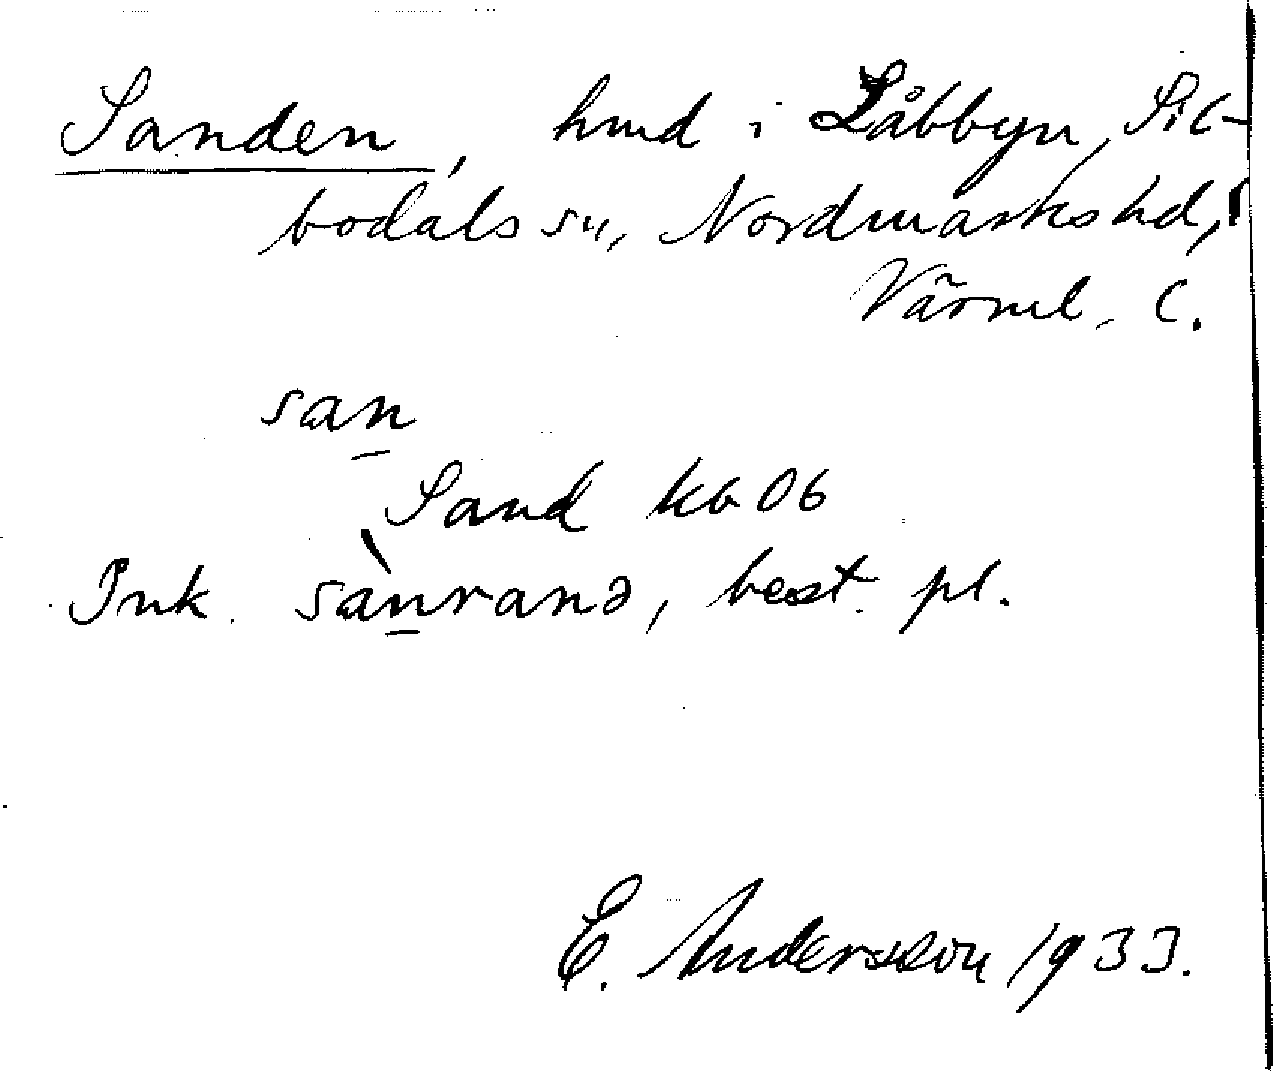 Sanden, hmd i Låbbyn, Sil-
bodals sn, Nordmarks hd,
Värml. l.
san̲
Sand kb 06
Ink. sàn̲ranə, best. pl.
E. Andersson 1933.